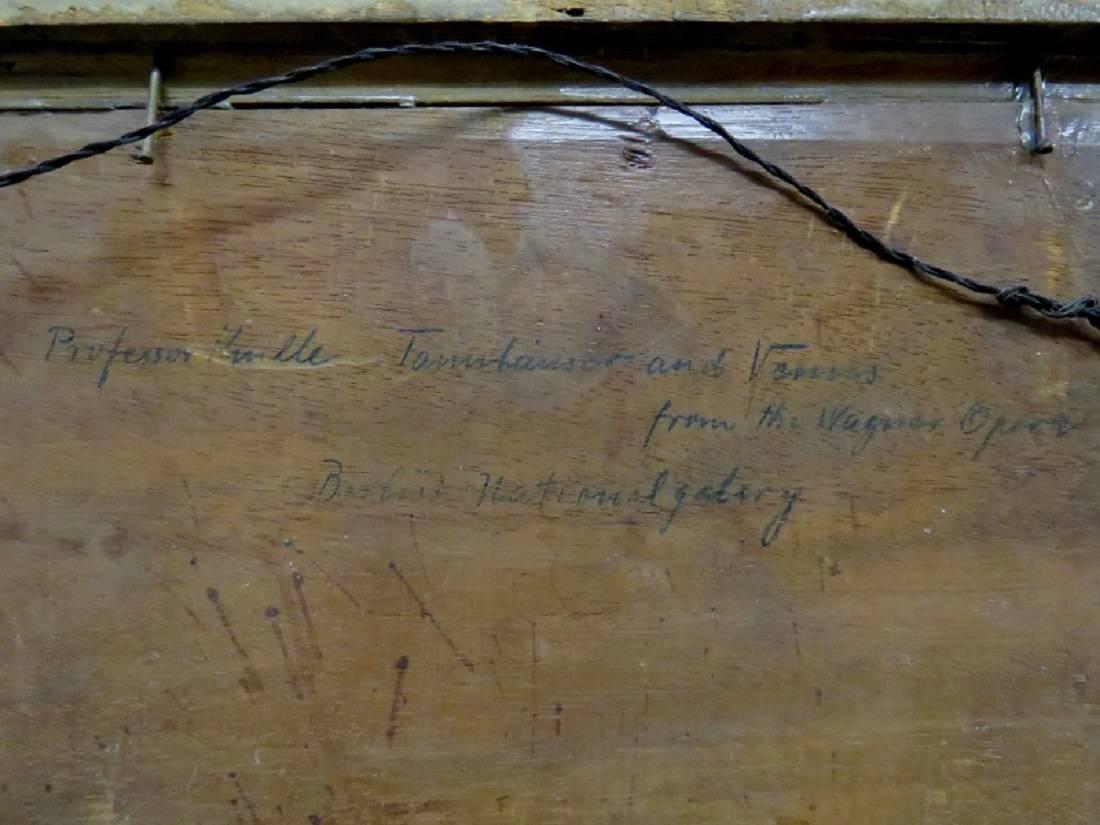 Professor Knille Tannhäuser and Venus
from the Wagner Opera
Berlin National galery